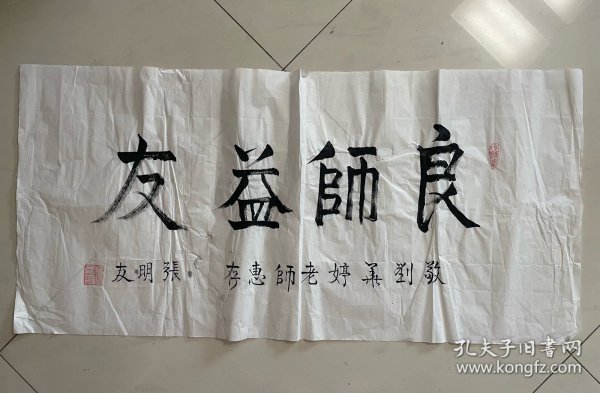 良師益友
敬刘華婷老師惠存 張明友
孔夫子旧書网
www.kongfz.com